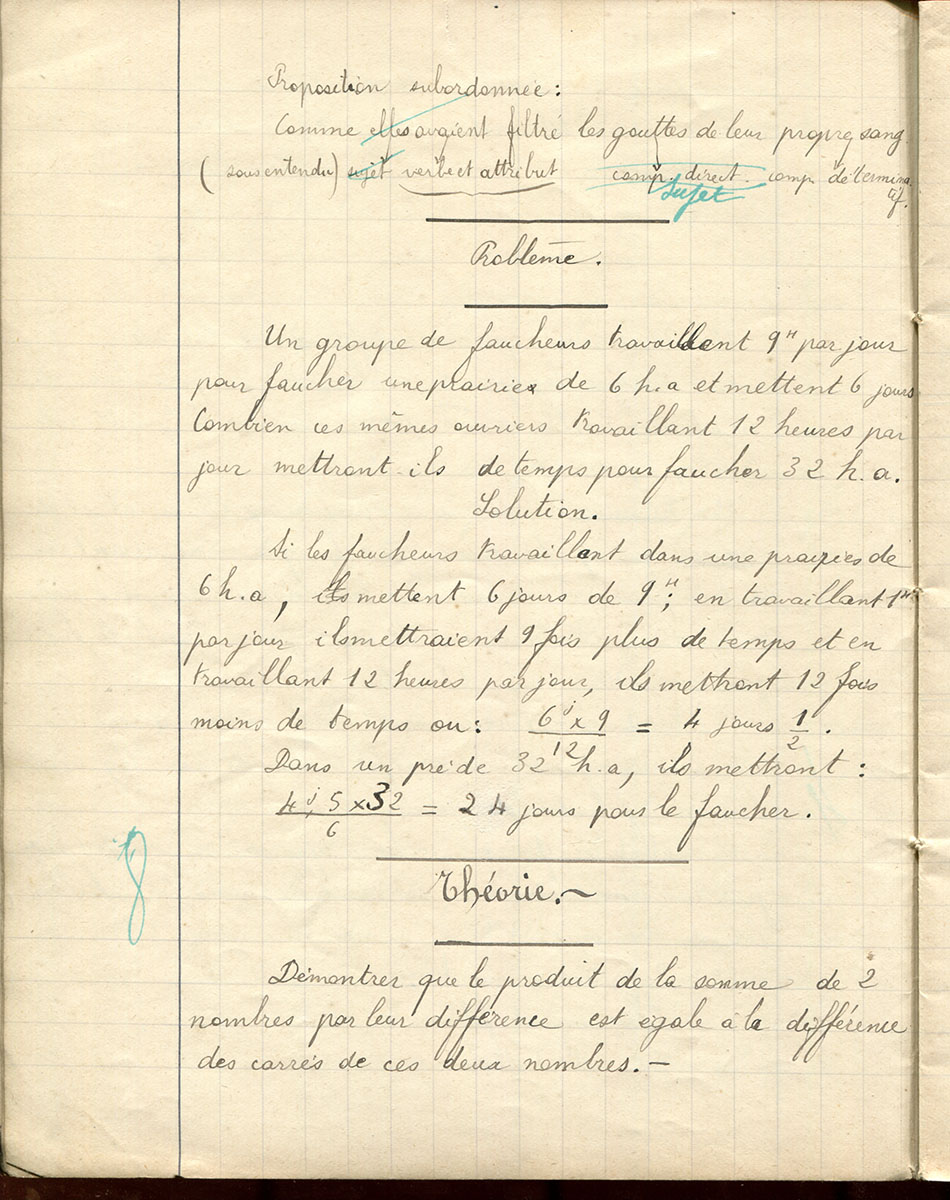 Proposition subordonnée :
Comme elles avaient filtré les gouttes de leur propre sang
(sous entendu) sujet verbe et attribut comp. direct. comp. détermina
tif.
sujet
Problème.
Un groupe de faucheurs travaillent 9h par jour
pour faucher une prairie de 6 h.a et mettent 6 jours
Combien ces mêmes ouvriers travaillant 12 heures par
jour mettront-ils de temps pour faucher 32 h.a.
Solution.
Si les faucheurs travaillent dans une prairies de
6 h.a, ils mettent 6 jours de 9h; en travaillant 1h
par jour ils mettraient 9 fois plus de temps et en
travaillant 12 heures par jour, ils mettront 12 fois
moins de temps ou : 6j x 9 / 12 = 4 jours 1/2.
Dans un pré de 32 h.a, ils mettront :
4j,5 x 32 / 6 = 24 jours pour le faucher.
8
Théorie.-
Démontrer que le produit de la somme de 2
nombres par leur différence est égale à la différence
des carrés de ces deux nombres.-